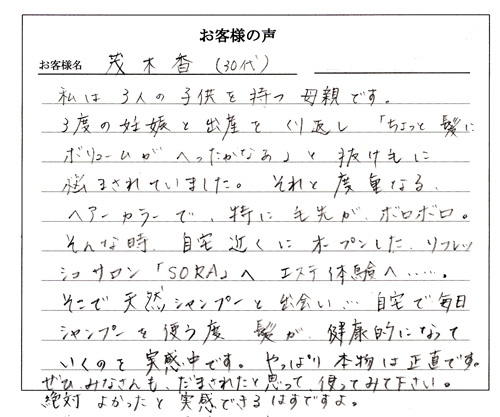 お客様の声
お客様名 茂木香 (30代)
私は3人の子供を持つ母親です。
3度の妊娠と出産をくり返し「ちょっと髪に
ボリュームがへったかなぁ」と抜け毛に
悩まされていました。それと度重なる、
ヘアーカラーで、特に毛先が、ボロボロ。
そんな時、自宅近くにオープンした、リフレッ
シュサロン「SORA」へ エステ体験へ……。
そこで天然シャンプーと出会い… 自宅で毎日
シャンプーを使う度 髪が、健康的になって
いくのを実感中です。やっぱり本物は正直です。
ぜひ、みなさんも、だまされたと思って、使ってみて下さい。
絶対よかったと実感できるはずですよ。